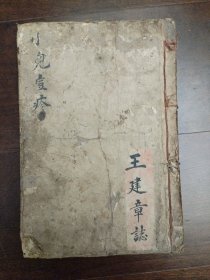 小兒痘疹
王建章誌